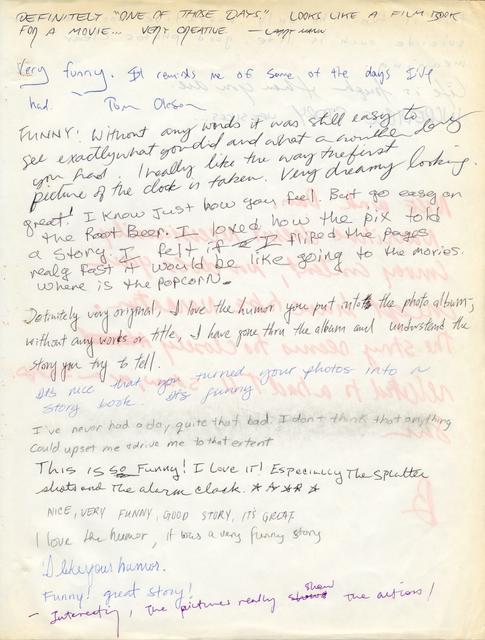 DEFINITELY "ONE OF THOSE DAYS." LOOKS LIKE A FILM BOOK
FOR A MOVIE... VERY CREATIVE. — LARRY
Very funny. It reminds me of some of the days I've
had. Tom Olson
FUNNY! Without any words it was still easy to
see exactly what you did and what a horrible day
you had. I really like the way the first
picture of the clock is taken. Very dreamy looking.
great! I know just how you feel. But go easy on
the Root Beer. I loved how the pix told
a story. I felt if I fliped the pages
realy fast it would be like going to the movies.
where is the popcorn.
Definitely very original, I love the humor you put into the photo album;
without any words or title, I have gone thru the album and understand the
story you try to tell.
Its nice that you turned your photos into a
story book. Its funny
I've never had a day, quite that bad. I don't think that anything
could upset me & drive me to that extent
This is so Funny! I Love it! Especially The Splatter
shots and The alarm clock. ★★★★
NICE, VERY FUNNY, GOOD STORY, IT'S GREAT
I love the humor, it was a very funny story
I like your humor.
Funny! great story!
show
- Interesting, the pictures really the actions!